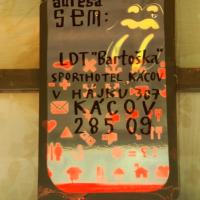 adresa
sem:
LDT "Bartoška"
SPORTHOTEL KÁCOV
V HÁJKU 387
KÁCOV
285 09